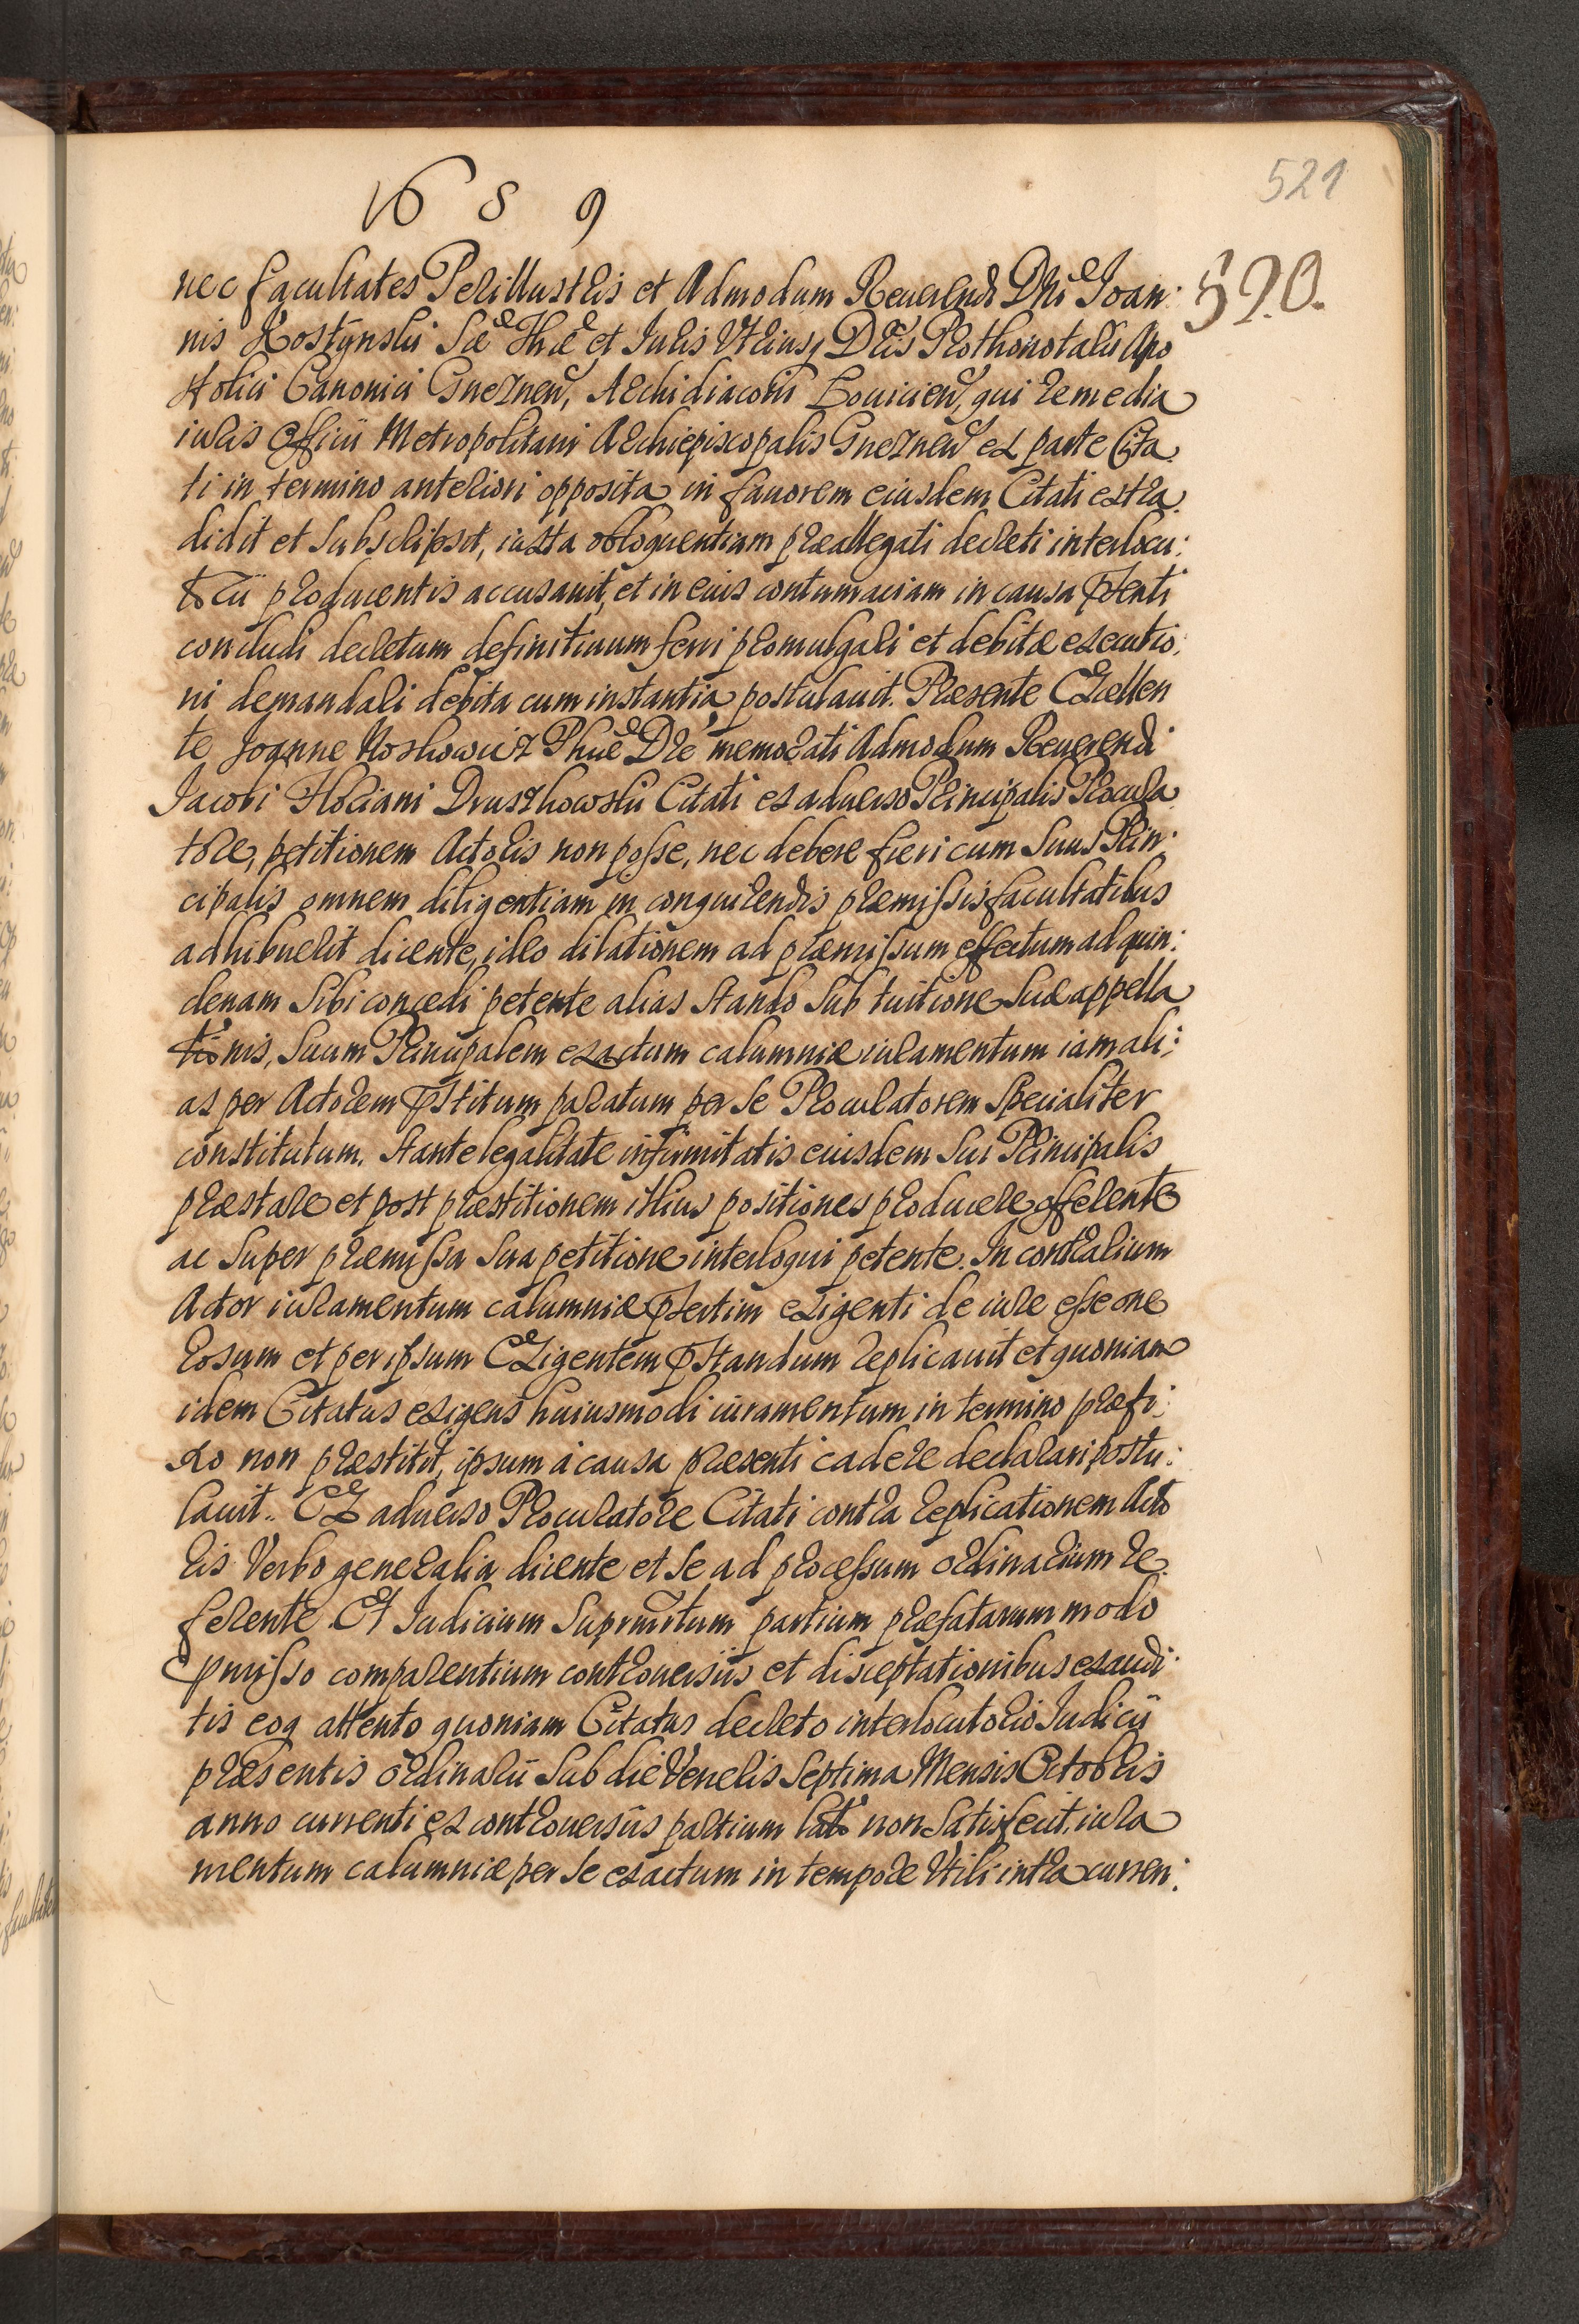 521
1689
520.
nec facultates Perillustris et Admodum Reuerendi Dni Ioan:
nis Kostynski Sae Thae et Iuris Vtriusq Dris Prothonotarii Apo
stolici Canonici Gneznen, Archidiaconi Louicien, qui remedia
iuris Officii Metropolitani Archiepiscopalis Gneznen ex parte Cita.
ti in termino anteriori opposita in fauorem eiusdem Citati extra.
didit et subscripsit, iuxta obloquentiam praeallegati decreti interlocu:
torii producentis accusauit, et in eius contumaciam in causa pnti
concludi decretum definitiuum ferri promulgari et debitae executio:
ni demandari debita cum instantia postulauit. Praesente Excellen
te Joanne Noskowicz Phiae Dre memorati Admodum Reuerendi
Jacobi Floriani Druszkowski Citati ex aduerso Principalis Procura.
tore, petitionem Actoris non posse, nec debere fieri cum Suus Prin:
cipalis omnem diligentiam in conquirendis praemissis facultatibus
adhibuerit dicente, ideo dilationem ad praemissum effectum ad quin:
denam Sibi concedi petente alias Stando Sub tuitione Suae appella
tionis, Suum Principalem exactum calumniae iuramentum iam ali:
as per Actorem pstitum paratum per Se Procuratorem Specialiter
constitutum. Stante legalitate infirmitatis eiusdem Sui Principalis
praestare et post praestitionem illius positiones producere offerente
ac Super praemissa Sua petitione interloqui petente. In contrarium
Actor iuramentum calumniae psertim exigenti de iure esse one
rosum et per ipsum Exigentem pstandum replicauit et quoniam
idem Citatus exigens huiusmodi iuramentum in termino praefi:
xo non praestitit, ipsum à causa praesenti cadere declarari postu:
lauit. Ex aduerso Procuratore Citati contra replicationem Acto
ris Verbo generalia dicente et Se ad processum ordinarium re.
ferente. Et Iudicium Suprmtum partium praefatarum modo
pmisso comparentium controuersiis et disceptationibus exaudi:
tis eoq attento quoniam Citatus decreto interlocutorio Iudicii
praesentis ordinarii Sub die Veneris Septima Mensis Octobris
anno currenti ex controuersiis partium lato non Satisfecit, iura
mentum calumniae per Se exactum in tempore Vtili intra curren: